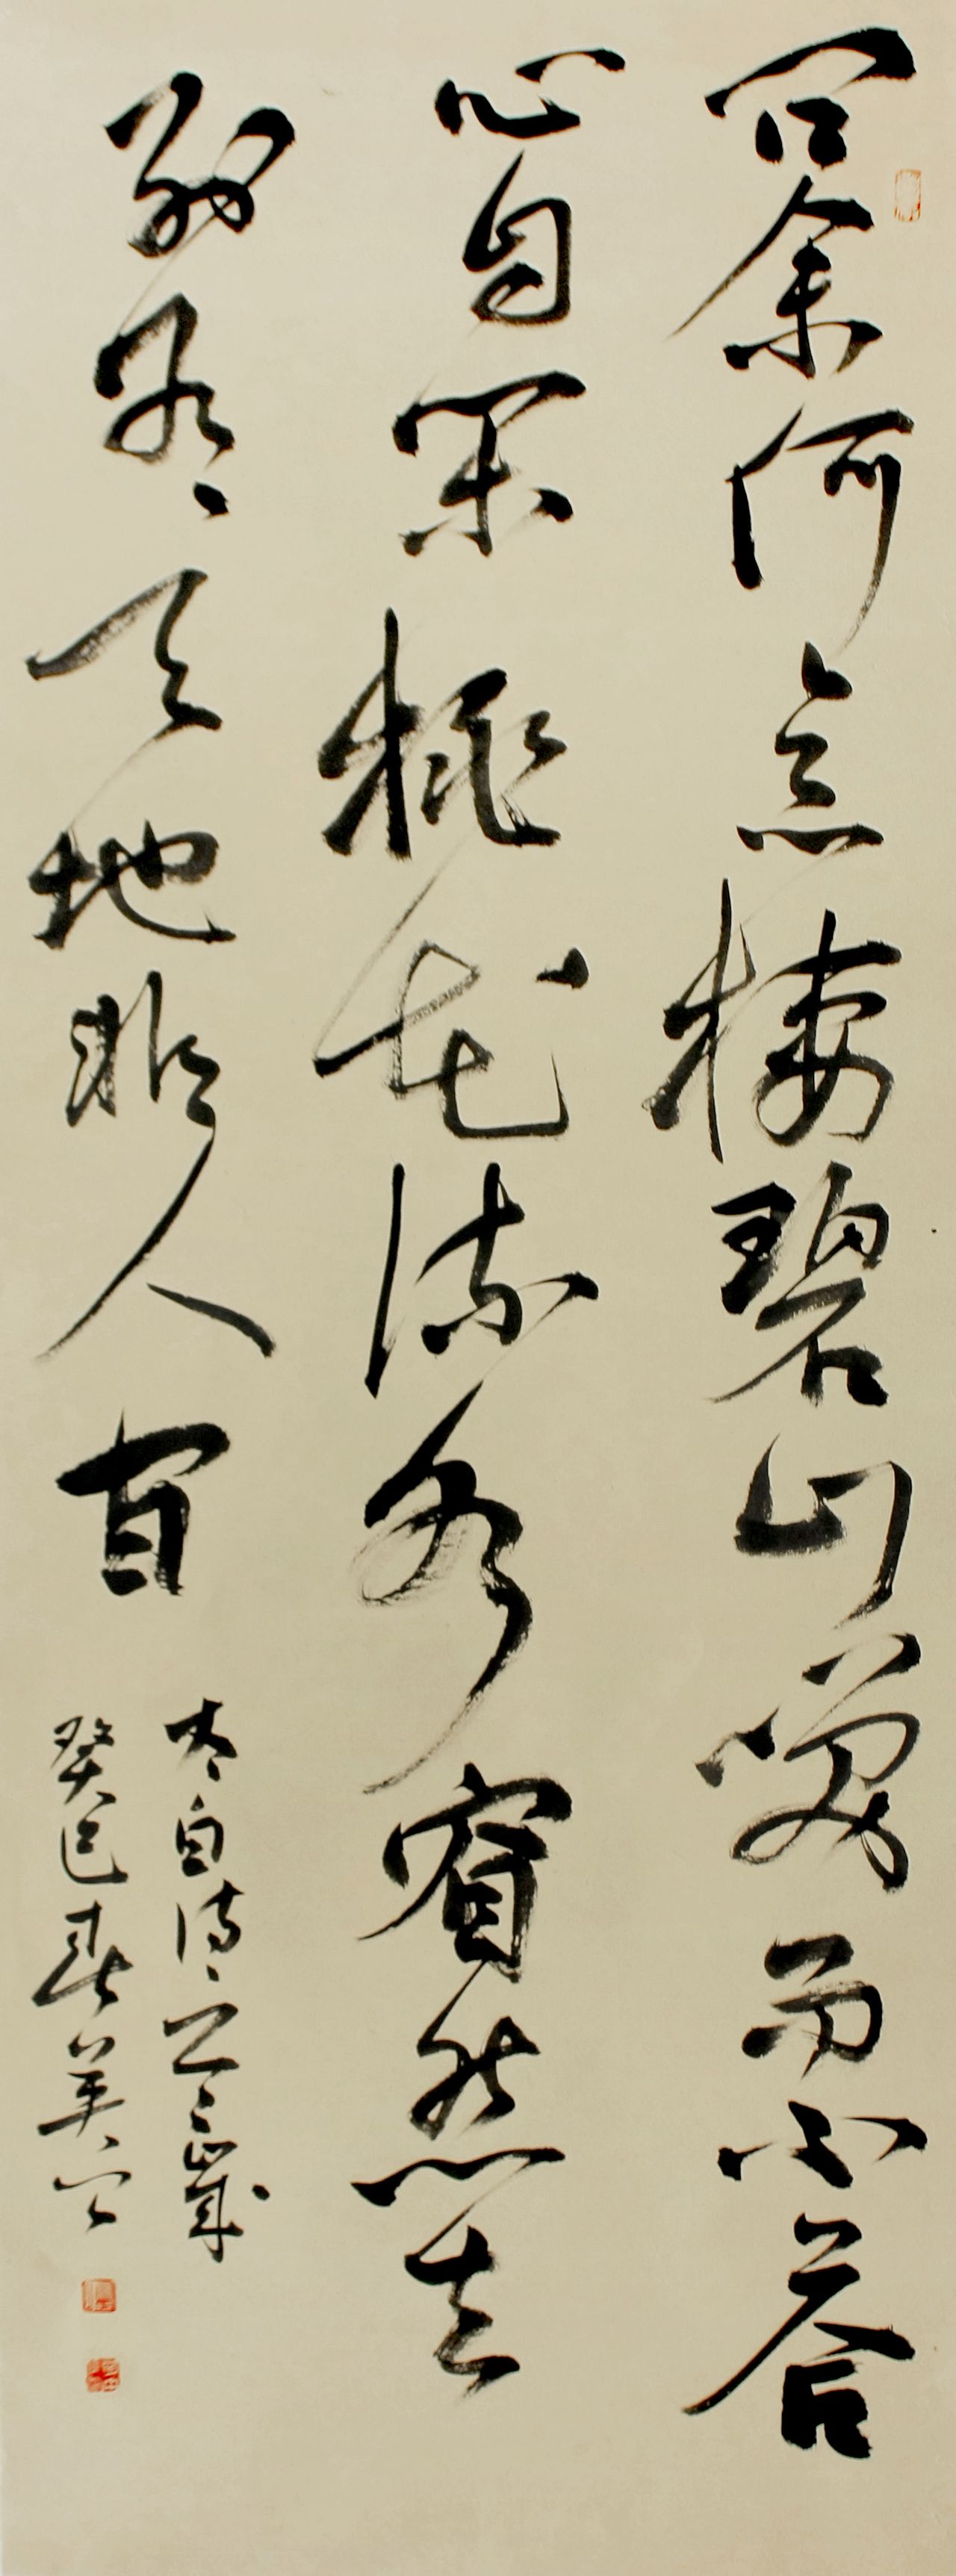 問余何意棲碧山笑而不答
心自閑桃花流水窅然去
別有天地非人間
太白詩
癸巳春